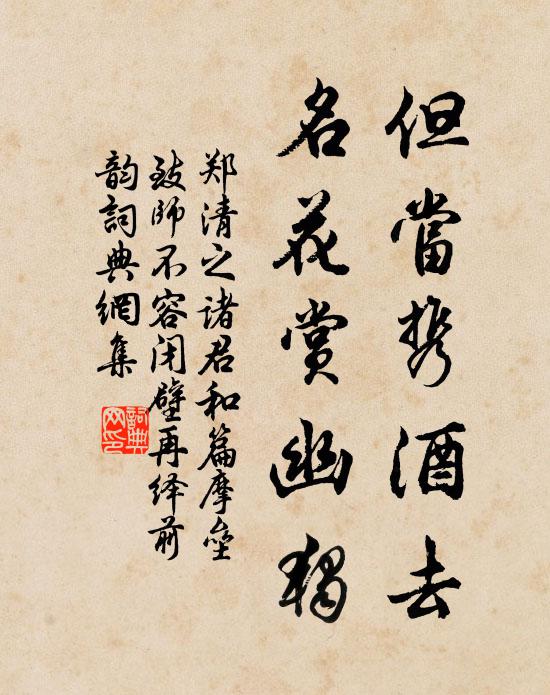 但當携酒去
名花赏幽独
郑清之诸君和篇摩垒
致師不容闭壁再绎前
韵詞典網集
詞典網印